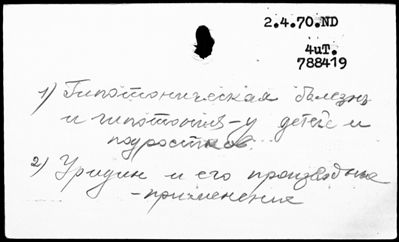 2.4.70.ND
4иТ.
788419
1) Гипотоническая болезнь
и гипотония-у детей и
подростков
2) Уридин и его производные
-применение